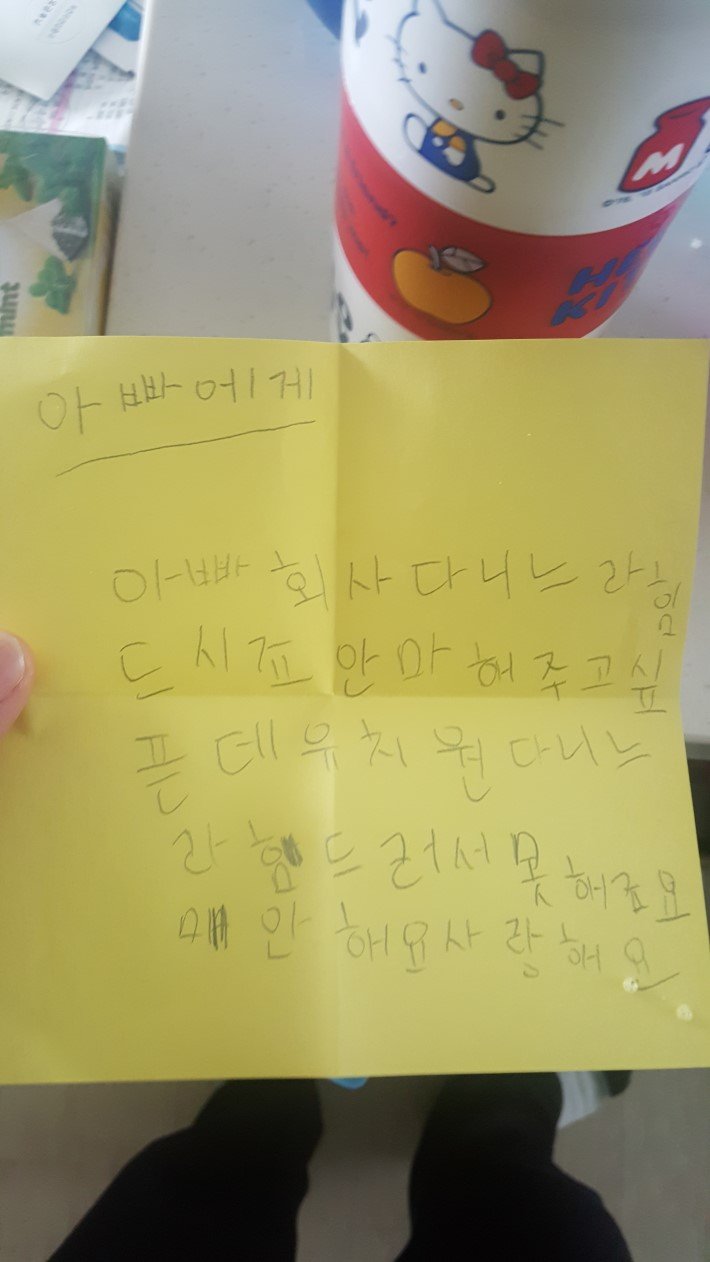 mint
M
HE
KI
아빠에게
아빠 회사 다니느라힘
드시죠 안마해주고싶
픈데유치원다니느
라힘드러서못해죠요
미안해요사랑해요